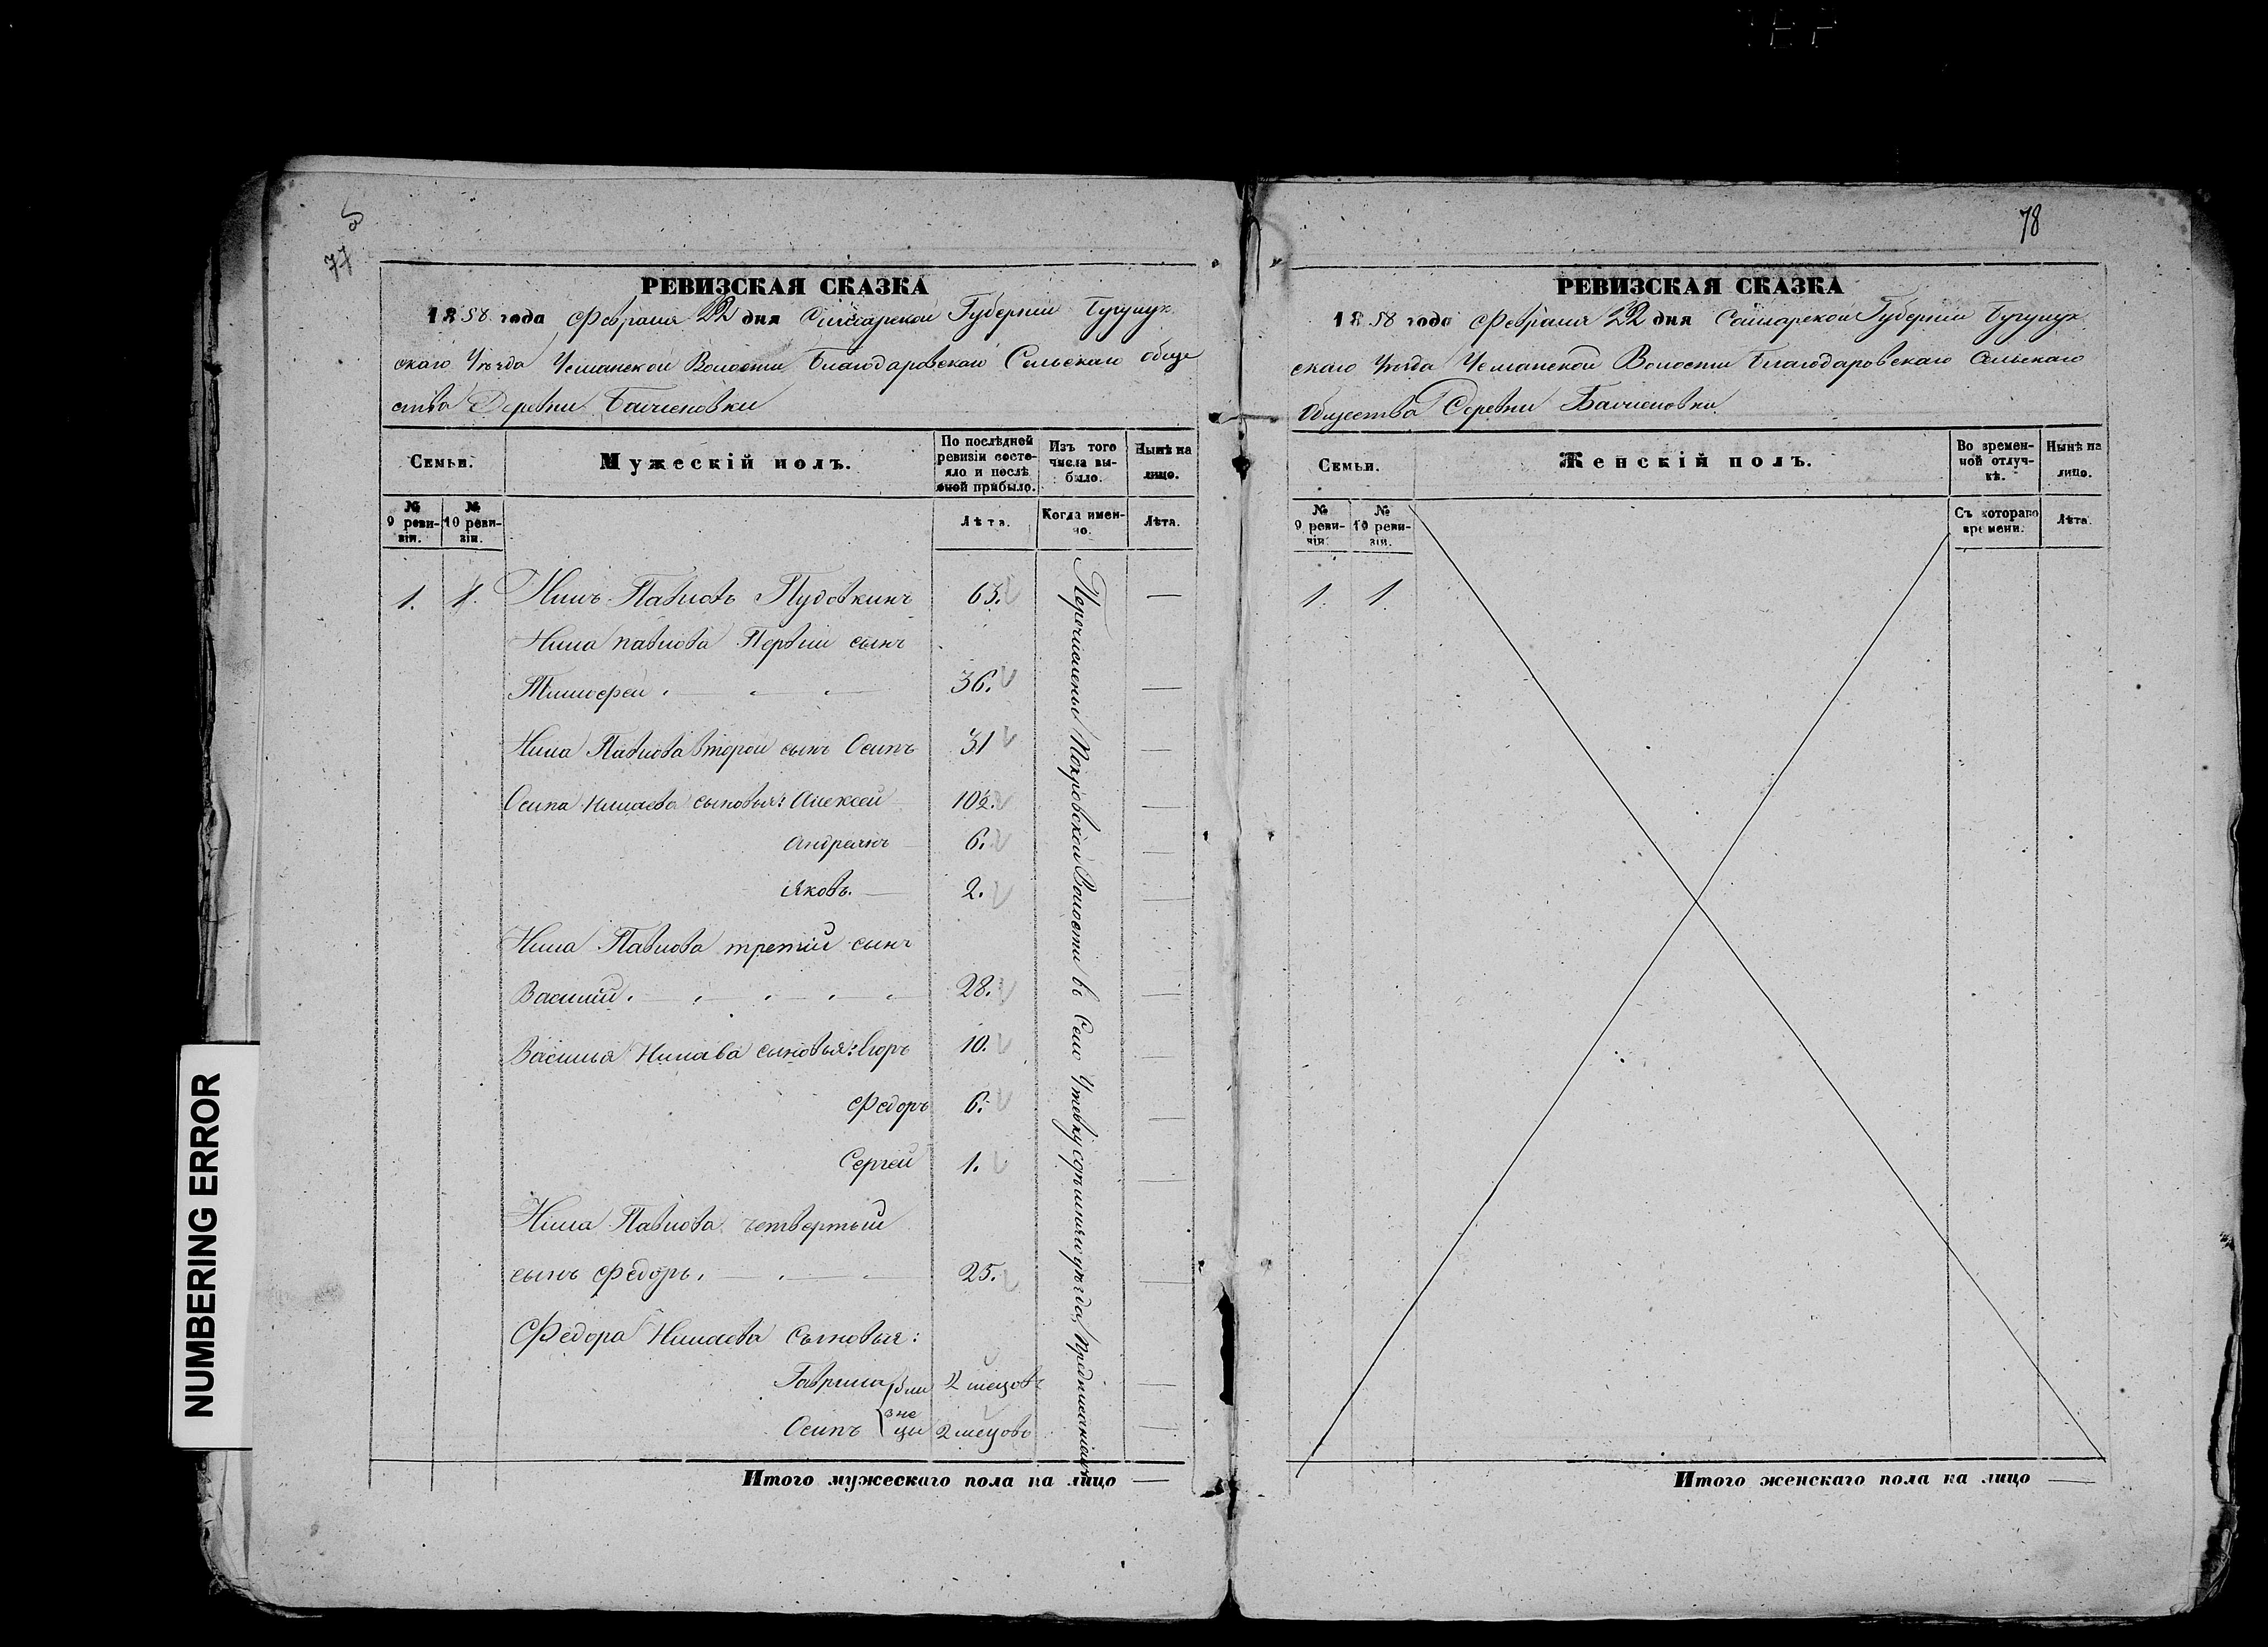 5
77
РЕВИЗСКАЯ СКАЗКА
1858 года Февраля 22 дня Самарской Губернии Бугурус
скаго Уезда Волости Благодаровскаго Сельскаго обще
ства Деревни
Семьи.
Мужескій полъ.
По послѣдней ревизіи состояло и послѣ оной прибыло.
Изъ того числа выбыло.
Нынѣ на лицо.
№ 9 ревизіи.
№ 10 ревизіи.
Лѣта.
Когда именно.
Лѣта.
1. 1. Нилъ Павловъ Пудовкинъ 63. —
Нила павлова Первый сынъ
Тимофей 36. —
Нила Павлова второй сынъ Осипъ 31 —
Осипа Нилаева сыновья: Алексей 10½. —
Андреянъ 6. —
Яковъ. 2. —
Нила Павлова третий сынъ
Василий. 28. —
Василья Нилава сыновья: Егоръ 10. —
Федоръ 6. —
Сергей 1. —
Нила Павлова четвертый
сынъ Федоръ. 25. —
Федора Нилаева Сыновья:
Гаврила бли 2 мецовъ —
Осипъ зне цы 2 мецовъ —
Перечислены Покровской Волости въ Село Утевку
Итого мужескаго пола на лицо —
78
РЕВИЗСКАЯ СКАЗКА
1858 года Февраля 22 дня Самарской Губернии
скаго Уезда Волости Благодаровскаго Сельскаго
Общества Деревни
Семьи.
Женскій полъ.
Во временной отлучкѣ.
Нынѣ на лицо.
№ 9 ревизіи.
№ 10 ревизіи.
Съ котораго времени.
Лѣта.
1. 1.
Итого женскаго пола на лицо —
NUMBERING ERROR